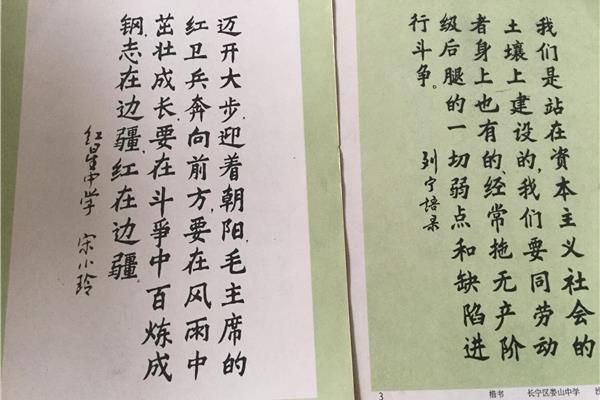 迈开大步,迎着朝阳,毛主席的
红卫兵奔向前方,要在风雨中
茁壮成长,要在斗爭中百炼成
钢,志在边疆,红在边疆。
红星中学 宋小玲
我们是站在资本主义社会的
土壤上建设的,我们要同劳动
者身上也有的、经常拖无产阶
级后腿的一切弱点和缺陷进
行斗争。
列宁語录
3
楷书 长宁区娄山中学